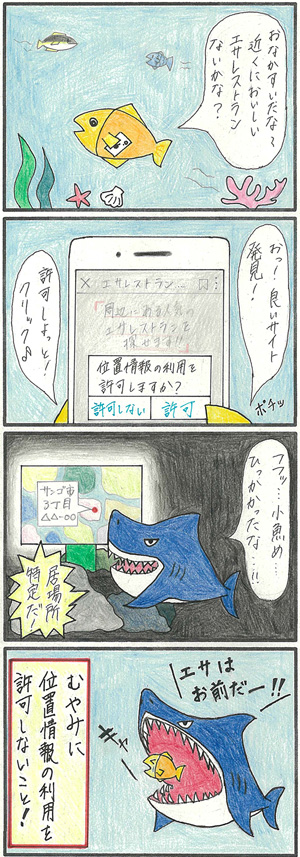 おなかすいたな〜
近くにおいしい
エサレストラン
ないかな？
おっ！良いサイト
発見！
× エサレストラン…
「周辺にある人気の
エサレストランを
探せます!!」
位置情報の利用を
許可しますか？
許可しない
許可
許可しよっと！
クリック♪
ポチッ
フフッ…小魚め…
ひっかかったな…!!
サンゴ市
3丁目
△△-○○
居場所
特定だ！
エサは
お前だー!!
ギャー
むやみに
位置情報の利用を
許可しないこと！